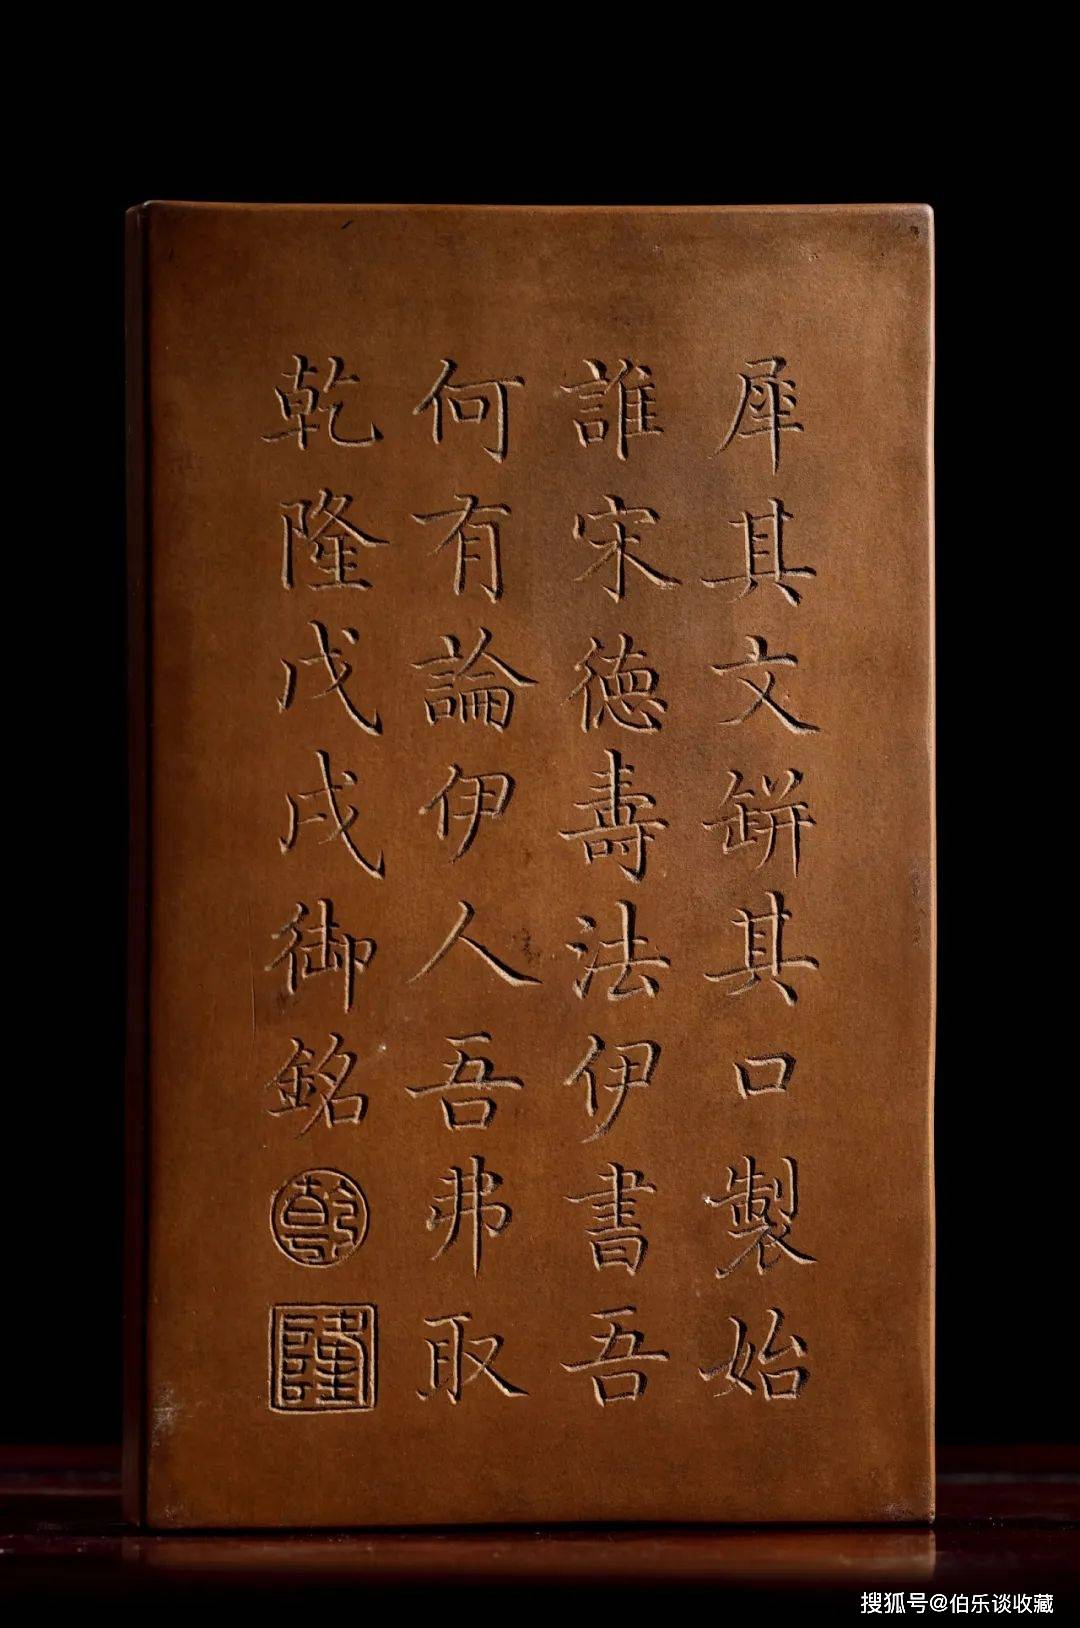 犀其文缾其口製始
誰宋徳壽法伊書吾
何有論伊人吾弗取
乾隆戊戌御銘
乾
隆
搜狐号@伯乐谈收藏